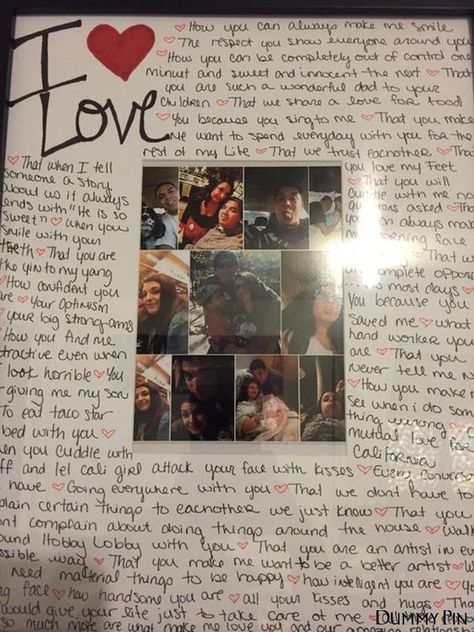 I ♥
Love
♥ How you can always make me smile
♥ The respect you show everyone around you
♥ How you can be completely out of control one
minuet and sweet and innocent the next ♥ That
you are such a wonderful dad to your
children ♥ That we share a love for food
♥ You because you sing to me ♥ That you make
We want to spend everyday with you for the
rest of my Life ♥ That we trust eachother ♥ That
♥ That when I tell
someone a story
about us it always
ends with "He is so
sweet" ♥ when you
smile with your
teeth ♥ That you are
the yin to my yang
♥ How confident you
are ♥ Your Optimism
♥ your big strong arms
♥ How you find me
attractive even when
I look horrible ♥ You
giving me my son
To eat taco star
bed with you ♥
when you cuddle with
you love my Feet
♥ That you will
cuddle with me
asked ♥ That
you can always
face ♥
♥ That
complete oppos
most days ♥
You because you
saved me what ♥
hard worker you
are ♥ That you
never tell me
♥ How you make
see when i do som
thing wrong ♥
mutual love for
California
off and let cali girl attack your face with kisses ♥ Every
have ♥ Going everywhere with you ♥ That we don't have to
explain certain things to eachother we just know ♥ That you
don't complain about doing things around the house ♥ Walk
around Hobby Lobby with you ♥ That you are an artist in ev
possible way ♥ That you make me want to be a better artist ♥
need material things to be happy ♥ how intelligent you are ♥
face ♥ how handsome you are ♥ all your kisses and hugs ♥ Tha
would give your life just to take care of me ♥
so much more are what make me love you and our
DUMMY PIN